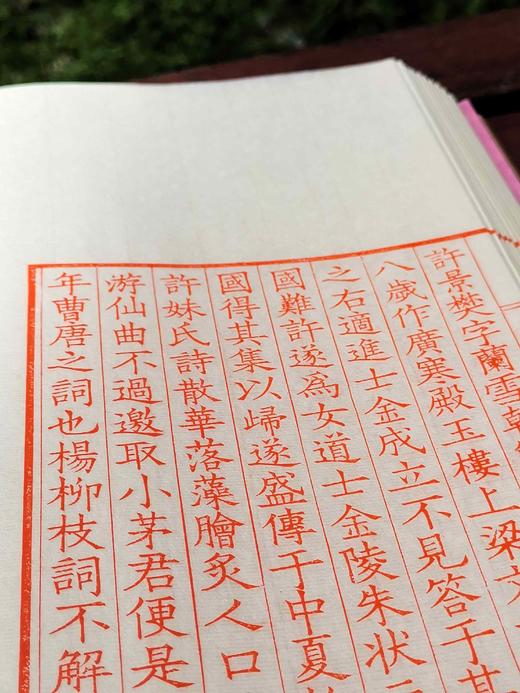 許景樊字蘭雪
八歲作廣寒殿玉樓上梁
之右適進士金成立不見答于其
國難許遂為女道士金陵朱狀
國得其集以歸遂盛傳于中夏
許妹氏詩散華落藻膾炙人口
游仙曲不過邀取小茅君便是
年曹唐之詞也楊柳枝詞不解